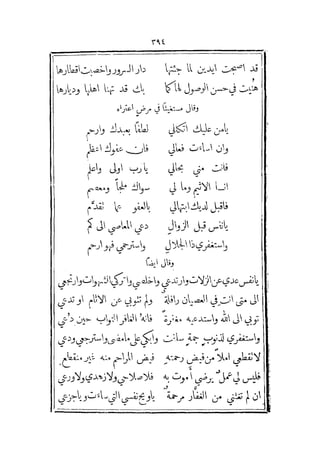 ٣٩٤
قد اصبحت ايدين لما جئتها دار السرور واخصبت اقطارها
هنيت في حسن الوصول لها كما بك قد تهنا اهلها وديارها
وقال مستغيثًا في مرض اعتراه
يامن عليك اتكالي لطفًا بعبدك وارحم
وان اساءت فعالي فان عفوك اعظم
فانت مني بحالي يارب اولى واعلم
انا الاثيم وما لي سواك ملجأ ومعصم
فاقبل لديك ابتهالي بالعفو عما تقدّم
يانفس قبل الزوال دعي المعاصي الى كم
واستغفري ذا الجلال واسترحمي فهو ارحم
وقال ايضًا
يانفس عدي عن الزلات وارتدعي واخلصي واتركي الشهوات وارتجعي
الى متى انت في العصيان رافلة ولم تتوبي عن الاثام او تدعي
توبي الى الله واستدعيه مغفرة فانه الغافر التواب حين دعي
واستغفري لذنوب جمة سلفت وابكي على ما مضى واسترجعي ودعي
لا تقطعي املًا من فيض رحمته فيض المراحم منه غير منقطع
فليس لي عمل يرضي أموت به فلا صلاحي ولا زهدي ولا ورعي
ان لم تغثني من الغفار مرحمة ياويح نفسي التي ساءت وياجزعي